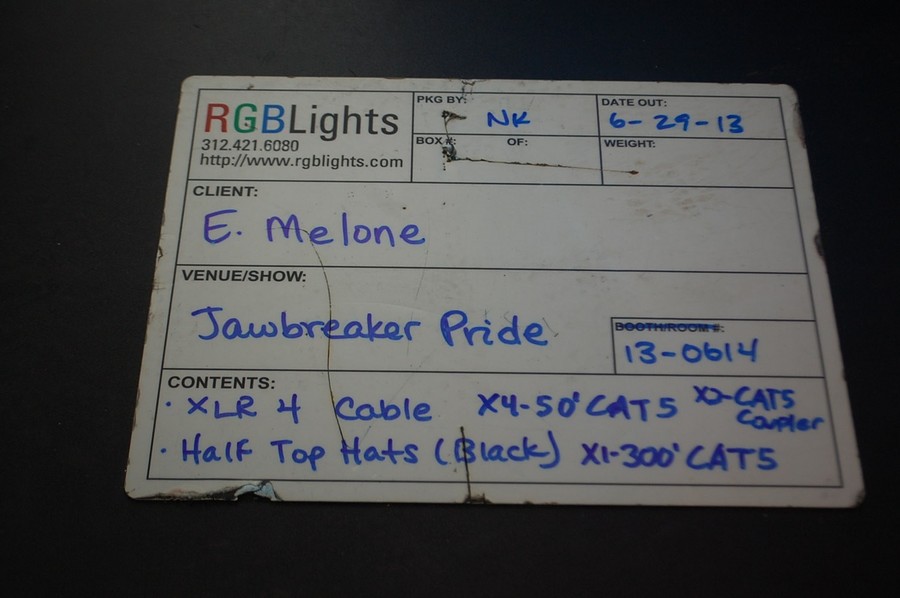 RGBLights
312.421.6080
http://www.rgblights.com
PKG BY: NK
DATE OUT: 6-29-13
BOX #: OF:
WEIGHT:
CLIENT:
E. Melone
VENUE/SHOW:
Jawbreaker Pride
BOOTH/ROOM #:
13-0614
CONTENTS:
· XLR 4 Cable X4-50' CAT5 X2-CAT5 Coupler
· Half Top Hats (Black) X1-300' CAT5